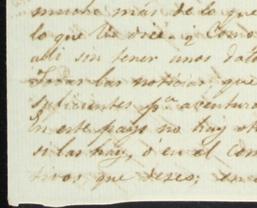 mucho más de lo que
lo que Vd dice. y Como
alli sin tener unos dato
las noticias que
suficientes pa. aventura
En este pays no hay ot
si las hay, ó en el com
tivos que deseo; en